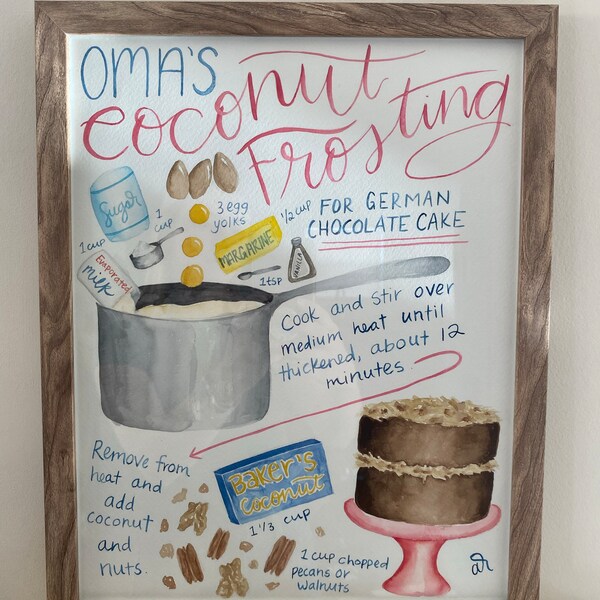 OMA'S
coconut
Frosting
FOR GERMAN
CHOCOLATE CAKE
Sugar
1
cup
3 egg
yolks
1/2 cup
MARGARINE
VANILLA
1 tsp
1 cup
Evaporated
milk
Cook and stir over
medium heat until
thickened, about 12
minutes.
Remove from
heat and
add
coconut
and
nuts.
Baker's
Coconut
1 1/3 cup
1 cup chopped
pecans or
walnuts
ar